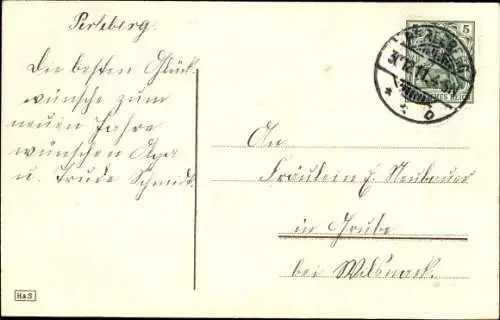 Perleberg.
Die besten Glück-
wünsche zum
neuen Jahre
wünschen Olga
u. Trude Schmidt.
5
An
Fräulein E. Neubauer
in Grube
bei Wilsnack.
H&S